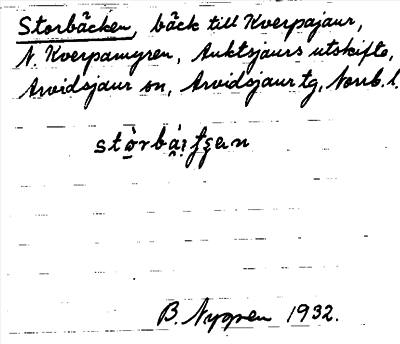 Storbäcken, bäck till Kverpajaur,
N. Kverpamyren, Auktsjaurs utskifte,
Arvidsjaur sn, Arvidsjaur tg, Norrb. l.
B. Nygren 1932.